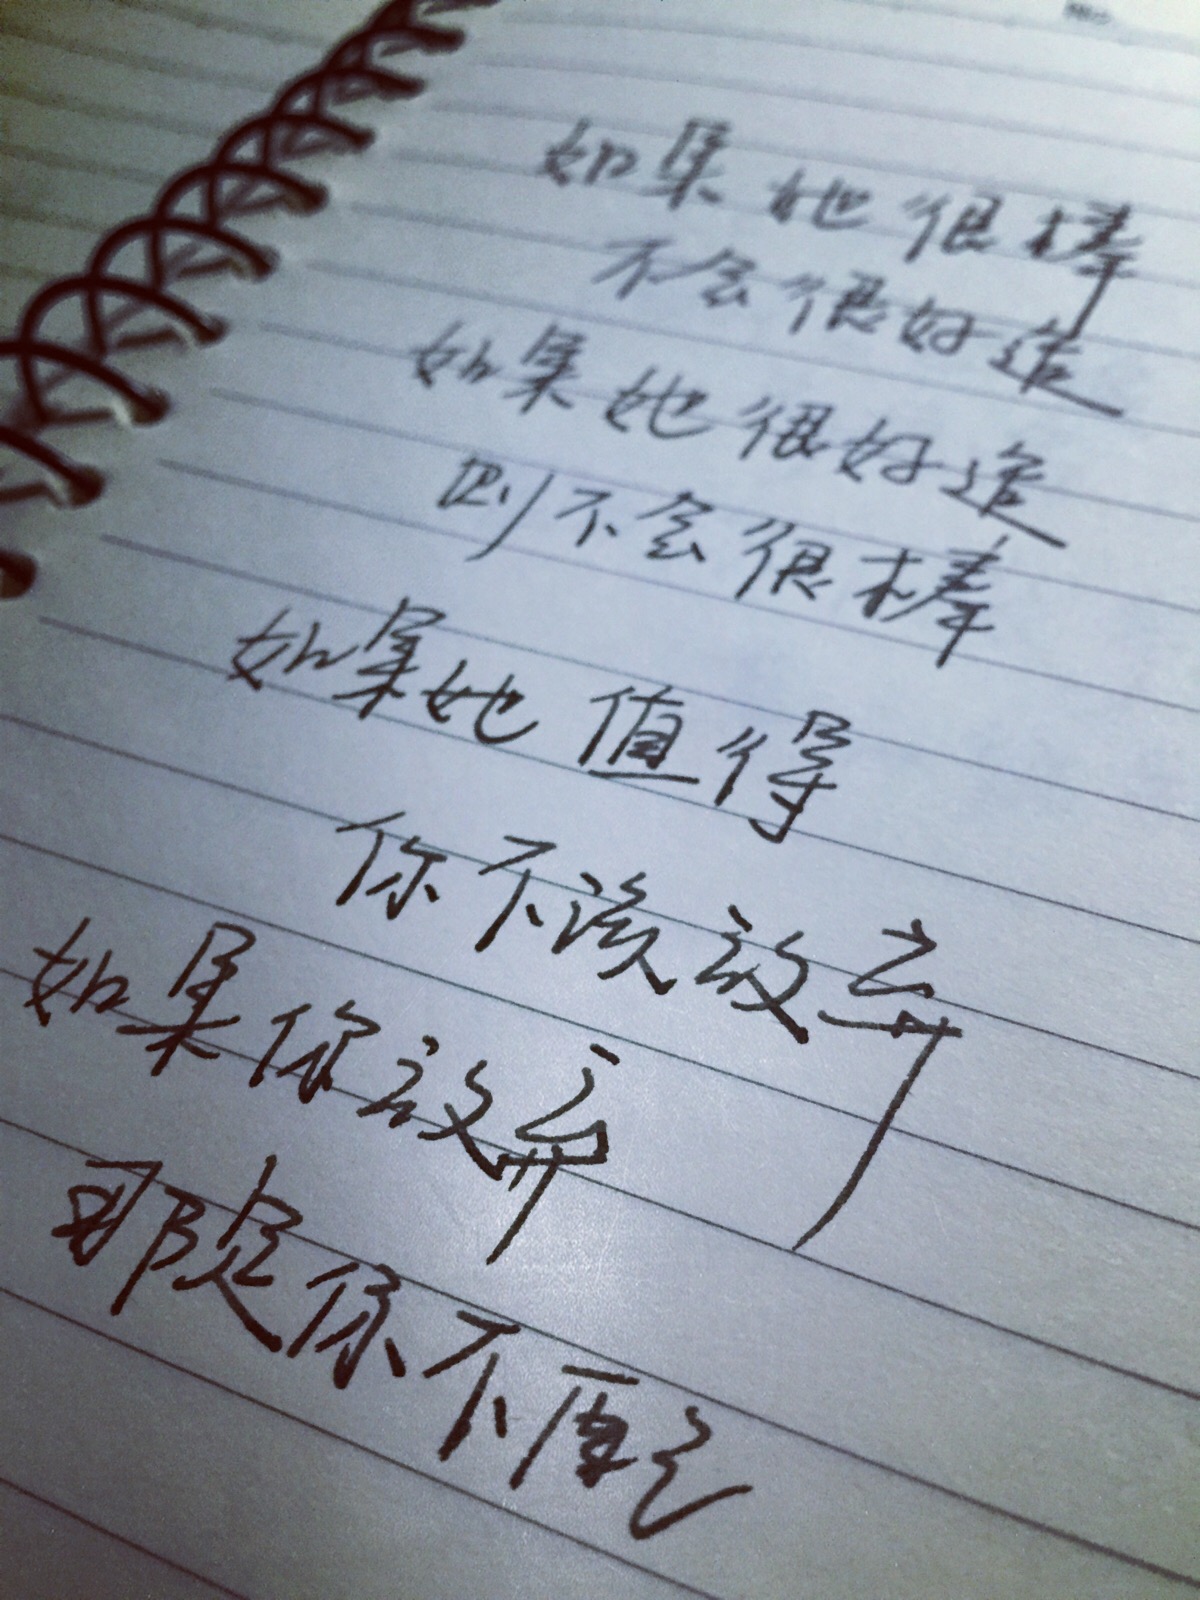 如果她很棒
不会很好追
如果她很好追
则不会很棒
如果她值得
你不该放弃
如果你放弃
那是你不配